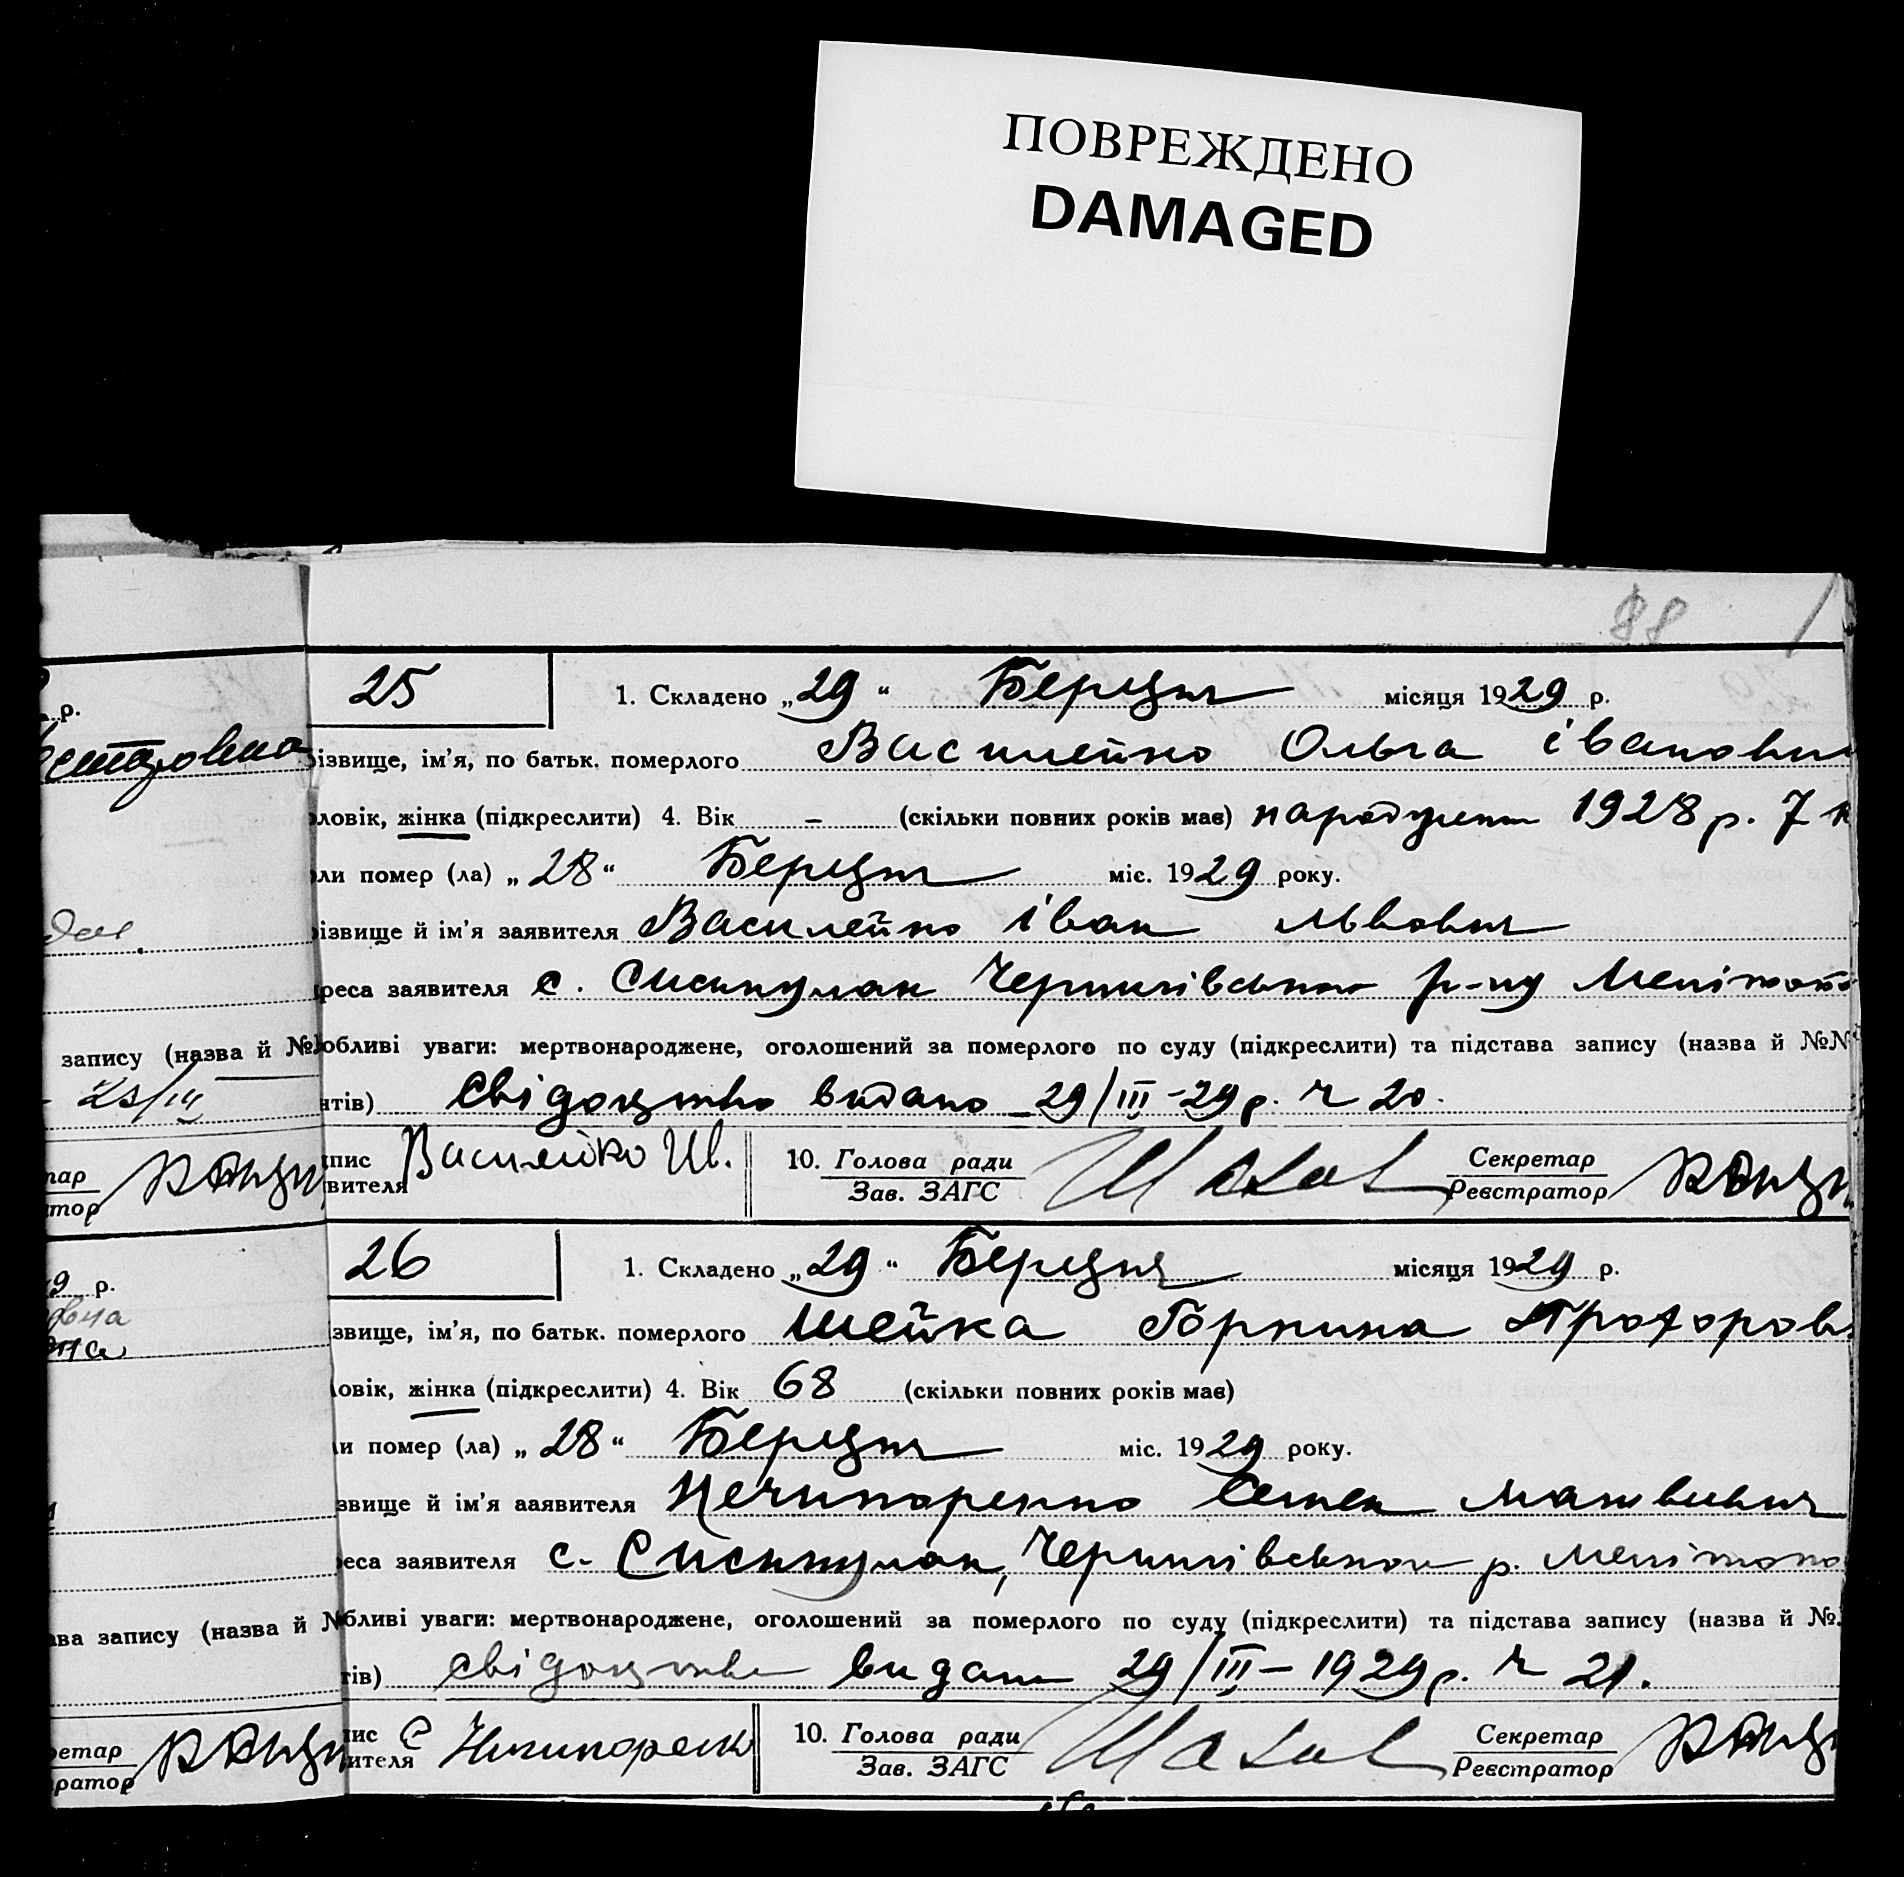 ПОВРЕЖДЕНО
DAMAGED
88
25
1. Складено „29“ Березня місяця 1929 р.
різвище, ім'я, по батьк. померлого Василейко Ольга івановн
ловік, жінка (підкреслити) 4. Вік – (скільки повних років має) народження 1928 р. 7
ли помер (ла) „28“ Березня міс. 1929 року.
різвище й ім'я заявителя Василейко іван Львович
реса заявителя с. Чернигівського р-ну Меліто
обливі уваги: мертвонароджене, оголошений за померлого по суду (підкреслити) та підстава запису (назва й №№
нтів) Свідоцтво видано 29/III-29 р. ч 20.
пис
вителя Василейко Ив.
10. Голова ради
Зав. ЗАГС
Секретар
Реєстратор
26
1. Складено „29“ Березня місяця 1929 р.
звище, ім'я, по батьк. померлого Шейка Горпина Прохоров
овік, жінка (підкреслити) 4. Вік 68 (скільки повних років має)
и помер (ла) „28“ Березня міс. 1929 року.
звище й ім'я ааявителя Нечипоренко Семен Матвієвич
реса заявителя с. Чернигівського р. Мелітопо
бливі уваги: мертвонароджене, оголошений за померлого по суду (підкреслити) та підстава запису (назва й №
тів) свідоцтво видано 29/III-1929 р. ч 21.
пис
ителя С Ничипоренк
10. Голова ради
Зав. ЗАГС
Секретар
Реєстратор
р.
запису (назва й №
тар
тор
9 р.
ава запису (назва й №
ретар
ратор